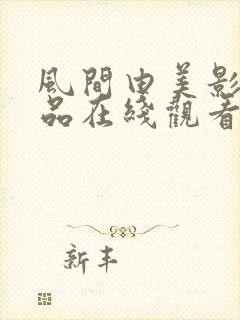 風間由美影
品在綫觀看
新丰